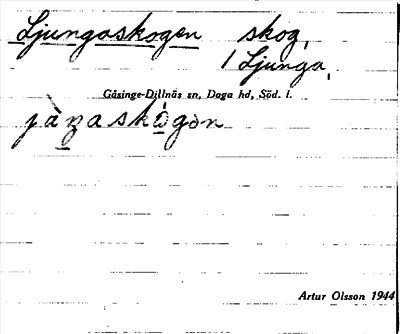 Ljungaskogen skog,
i Ljunga,
Gåsinge-Dillnäs sn, Daga hd, Söd. l.
Artur Olsson 1944